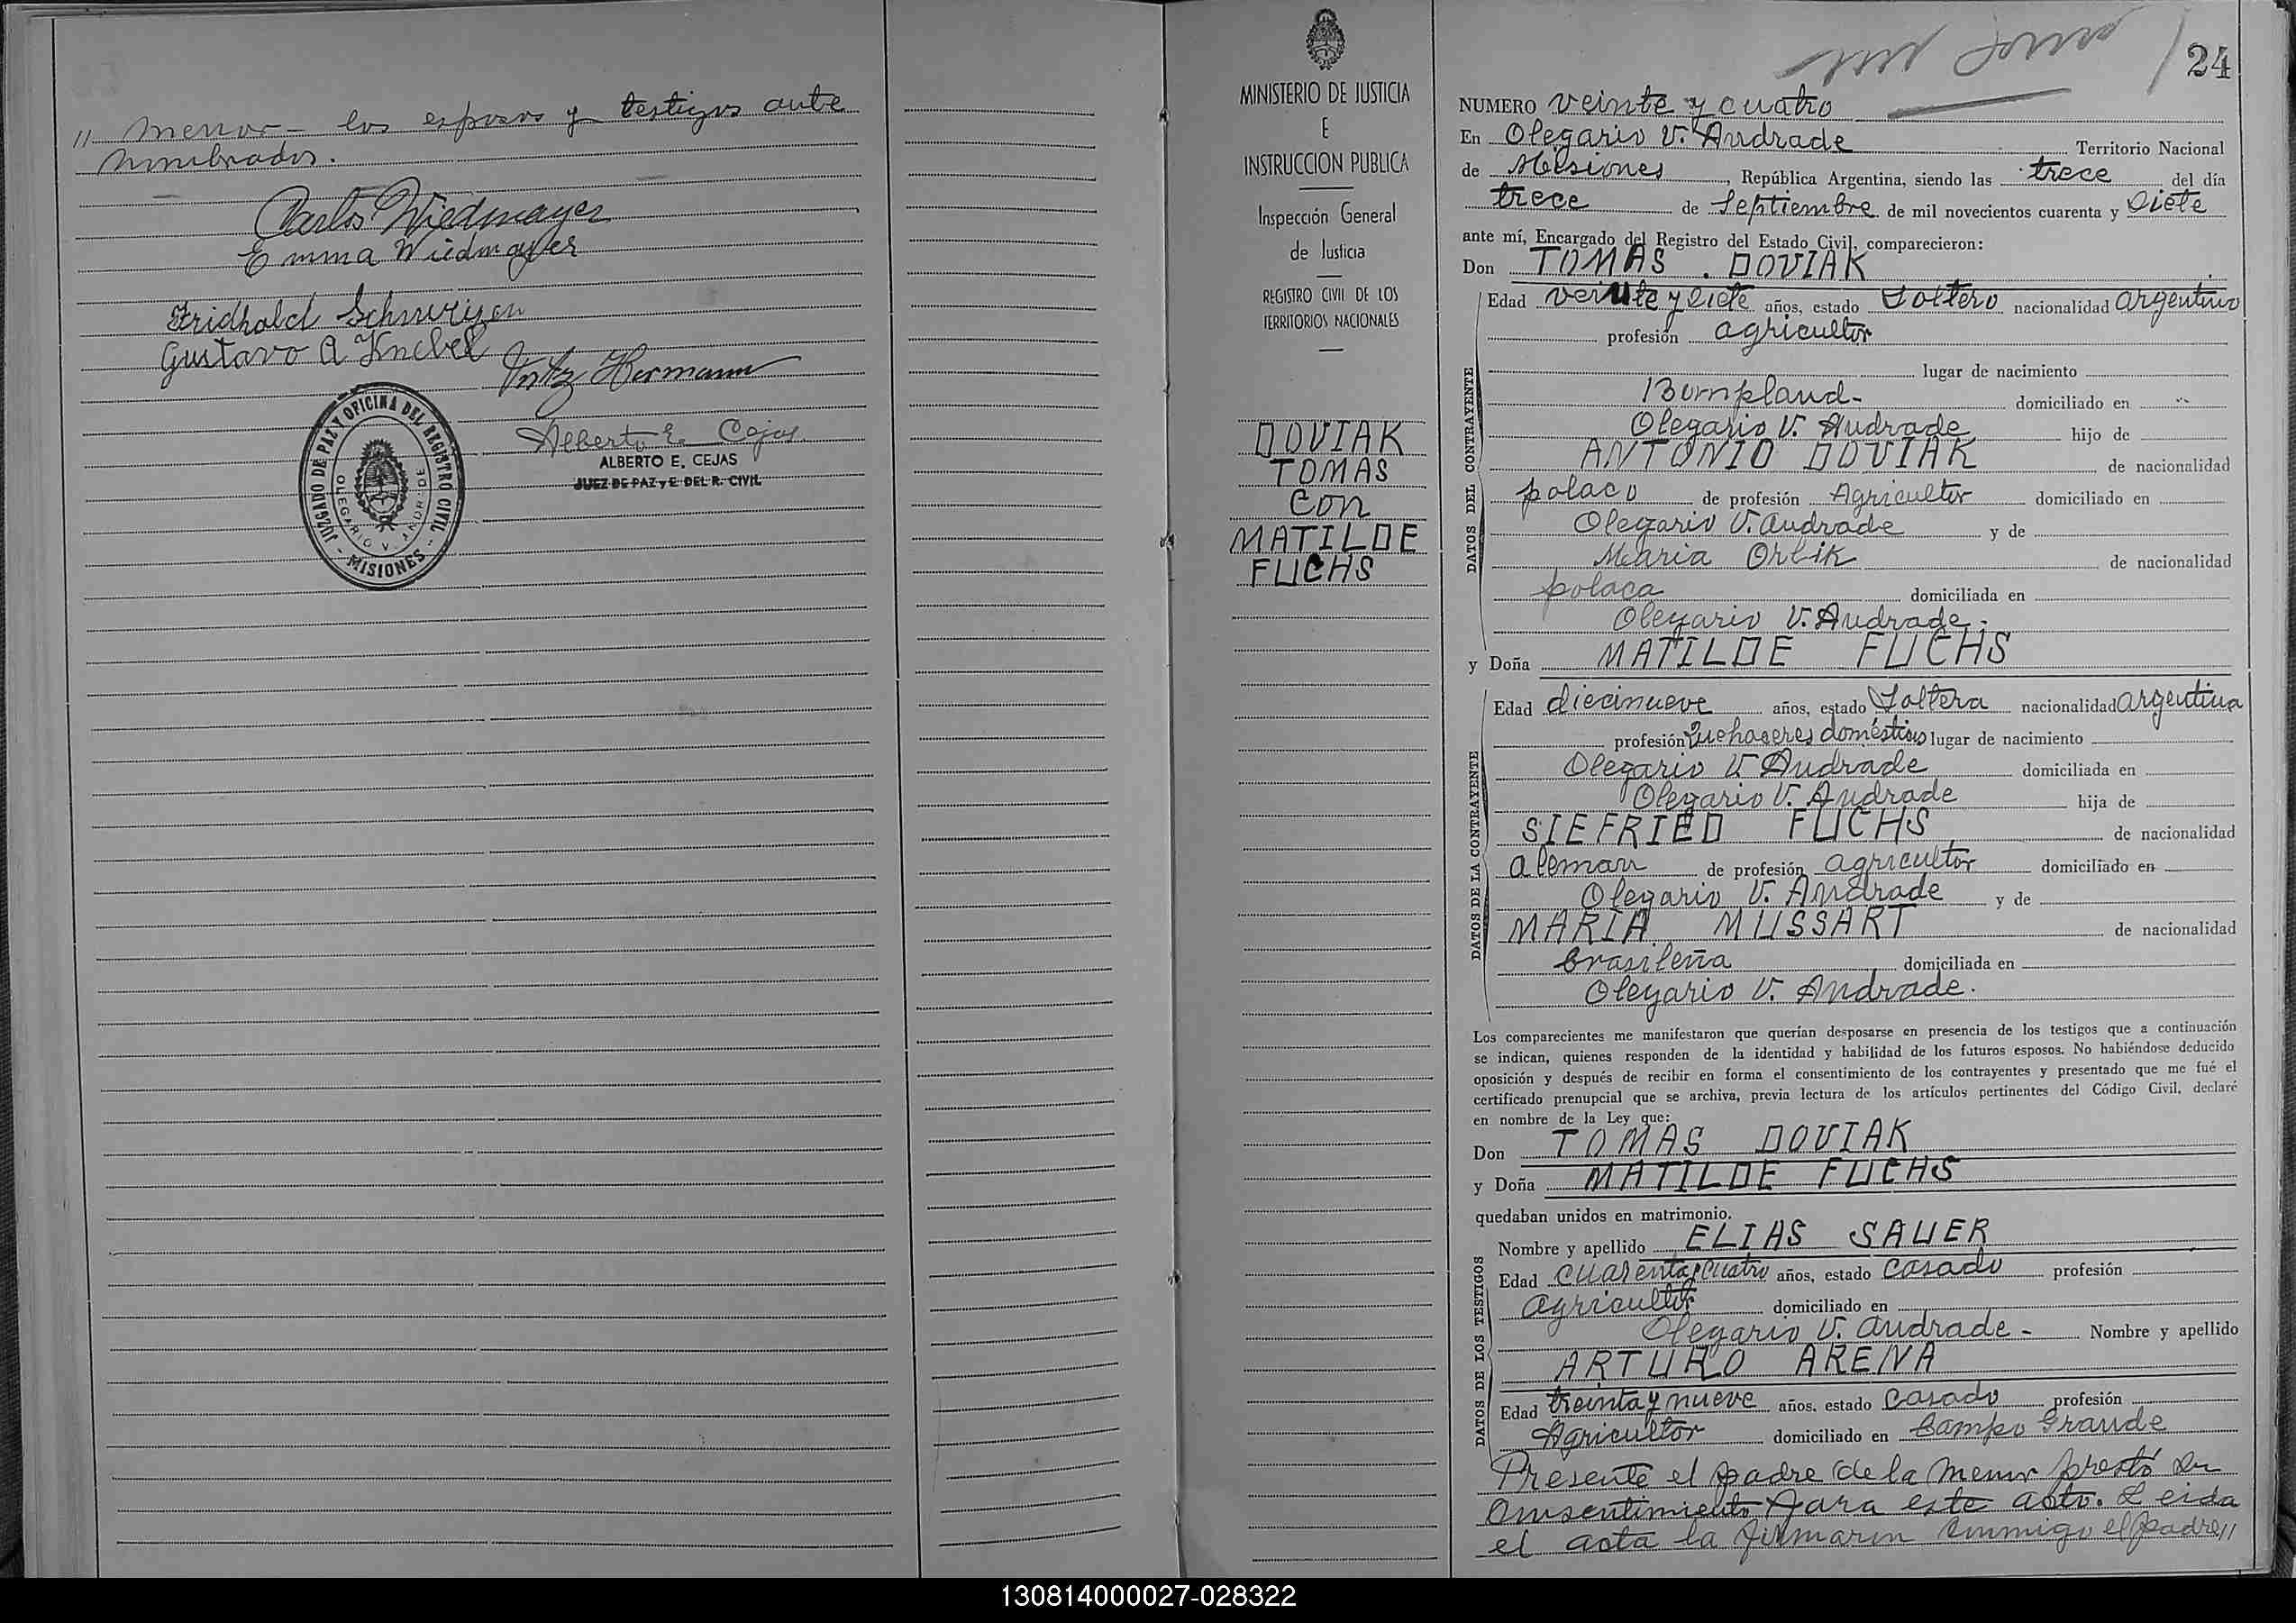 " menor - los esposos y testigos ante
nombrados.
Carlos Wiedmayer
Emma Wiedmayer
Fridhold
Gustavo A Knebel
Fritz Hermann
Alberto E. Cejas
ALBERTO E. CEJAS
JUEZ DE PAZ y E. DEL R. CIVIL
JUZGADO DE PAZ Y OFICINA DEL REGISTRO CIVIL
OLEGARIO V. ANDRADE
- MISIONES -
MINISTERIO DE JUSTICIA
E
INSTRUCCION PUBLICA
Inspección General
de Justicia
REGISTRO CIVIL DE LOS
TERRITORIOS NACIONALES
DOVIAK
TOMAS
con
MATILDE
FUCHS
24
NUMERO veinte y cuatro
En Olegario V. Andrade Territorio Nacional
de Misiones, República Argentina, siendo las trece del día
trece de Septiembre de mil novecientos cuarenta y siete
ante mí, Encargado del Registro del Estado Civil, comparecieron:
Don TOMAS DOVIAK
DATOS DEL CONTRAYENTE
Edad veinte y siete años, estado soltero nacionalidad argentino
profesión agricultor
lugar de nacimiento
Bompland - domiciliado en
Olegario V. Andrade hijo de
ANTONIO DOVIAK de nacionalidad
polaco de profesión Agricultor domiciliado en
Olegario V. Andrade y de
Maria Orlik de nacionalidad
polaca domiciliada en
Olegario V. Andrade.
y Doña MATILDE FUCHS
DATOS DE LA CONTRAYENTE
Edad diecinueve años, estado soltera nacionalidad argentina
profesión Quehaceres domésticos lugar de nacimiento
Olegario V. Andrade domiciliada en
Olegario V. Andrade hija de
SIEFRIED FUCHS de nacionalidad
aleman de profesión agricultor domiciliado en
Olegario V. Andrade y de
MARIA MUSSART de nacionalidad
brasileña domiciliada en
Olegario V. Andrade.
Los comparecientes me manifestaron que querían desposarse en presencia de los testigos que a continuación
se indican, quienes responden de la identidad y habilidad de los futuros esposos. No habiéndose deducido
oposición y después de recibir en forma el consentimiento de los contrayentes y presentado que me fué el
certificado prenupcial que se archiva, previa lectura de los artículos pertinentes del Código Civil, declaré
en nombre de la Ley que:
Don TOMAS DOVIAK
y Doña MATILDE FUCHS
quedaban unidos en matrimonio.
DATOS DE LOS TESTIGOS
Nombre y apellido ELIAS SAUER
Edad cuarenta y cuatro años, estado casado profesión
agricultor domiciliado en
Olegario V. Andrade - Nombre y apellido
ARTURO ARENA
Edad treinta y nueve años, estado casado profesión
Agricultor domiciliado en Campo Grande
Presente el padre de la menor prestó su
consentimiento para este acto. Leida
el acta la firmaron conmigo el padre "
130814000027-028322